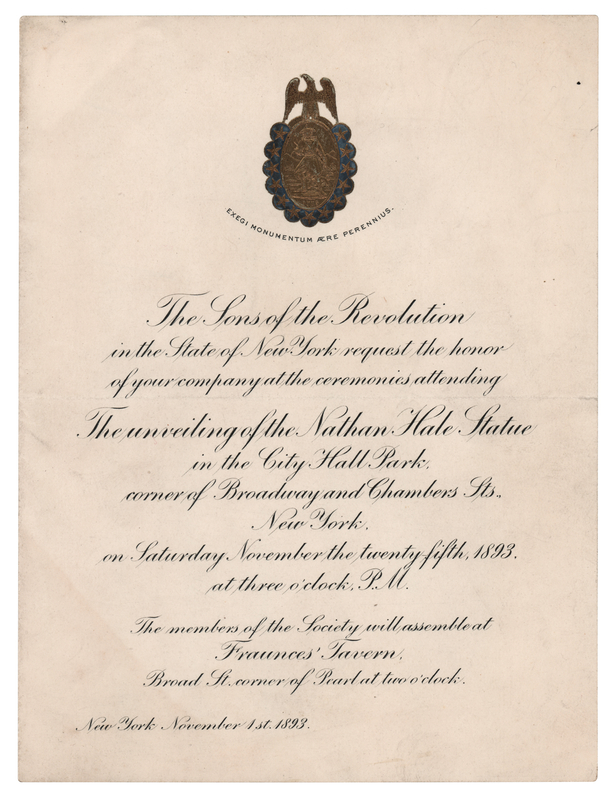 EXEGI MONUMENTUM ÆRE PERENNIUS.
The Sons of the Revolution
in the State of New York request the honor
of your company at the ceremonies attending
The unveiling of the Nathan Hale Statue
in the City Hall Park,
corner of Broadway and Chambers Sts.,
New York,
on Saturday November the twenty-fifth, 1893.
at three o'clock, P.M.
The members of the Society will assemble at
Fraunces' Tavern,
Broad St. corner of Pearl at two o'clock.
New York November 1st. 1893.